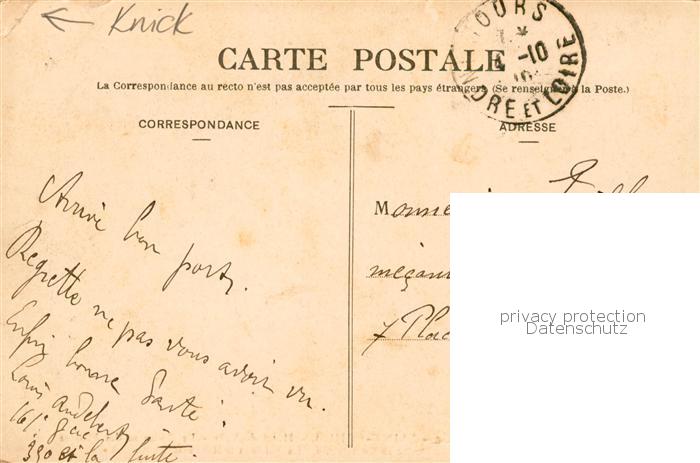 Knick
CARTE POSTALE
La Correspondance au recto n'est pas acceptée par tous les pays étrangers (Se renseigner à la Poste.)
TOURS
* 
-10
INDRE ET LOIRE
CORRESPONDANCE
ADRESSE
Arrivé bon port.
Regrette ne pas vous avoir vu.
Enfin bonne Santé
Louis
161
390 et la suite.
Monsie
mécani
7 Plac
privacy protection
Datenschutz